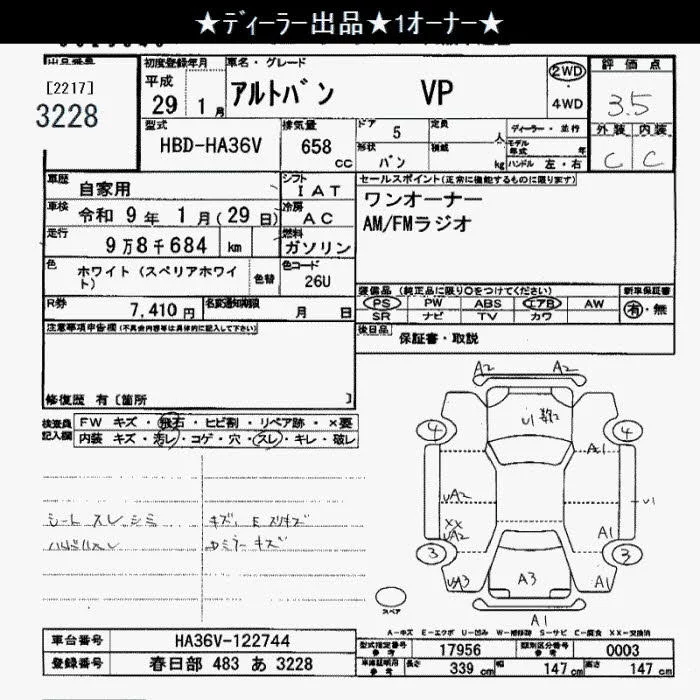 ★ディーラー出品★1オーナー★
出品番号 初度登録年月 車名・グレード 2WD 評価点
[2217] 平成 アルトバン VP 4WD 3.5
3228 29 1月
型式 HBD-HA36V 排気量 658 cc ドア 5 定員 人 ディーラー・並行 外装 内装
形状 バン 積載 kg モデル年式 年式 ハンドル 左・右 C C
車歴 自家用 シフト IAT セールスポイント(正常に機能するものに限ります)
車検 令和 9年 1月(29日) 冷房 AC ワンオーナー
走行 9万8千684 km 燃料 ガソリン AM/FMラジオ
色 ホワイト(スペリアホワイト) 色替 色コード 26U
装備品 (純正品に限り○をつけてください) 新車保証書
R券 7,410円 名変通知期限 月 日 PS PW ABS エアB AW 有・無
SR ナビ TV カワ
注意事項申告欄(不具合内容等は具体的に記入して下さい) 後日品 保証書・取説
修復歴 有〔箇所 〕
検査員記入欄 FW キズ・飛石・ヒビ割・リペア跡・×要
内装 キズ・汚レ・コゲ・穴・スレ・キレ・破レ
シート スレ シミ キズ
ミラー キズ
A2 A2
U1
4 4
A1
UA2 U1
XX
UA2 A1
3 3
UA3 A3 A1
A1
スペア
A-キズ E-エクボ U-凹み W-補修跡 S-サビ C-腐食 XX-交換済
車台番号 HA36V-122744 型式指定番号 参考 17956 類別区分番号 参考 0003
登録番号 春日部 483 あ 3228 車庫証明用 参考 長さ 339 cm 幅 147 cm 高さ 147 cm